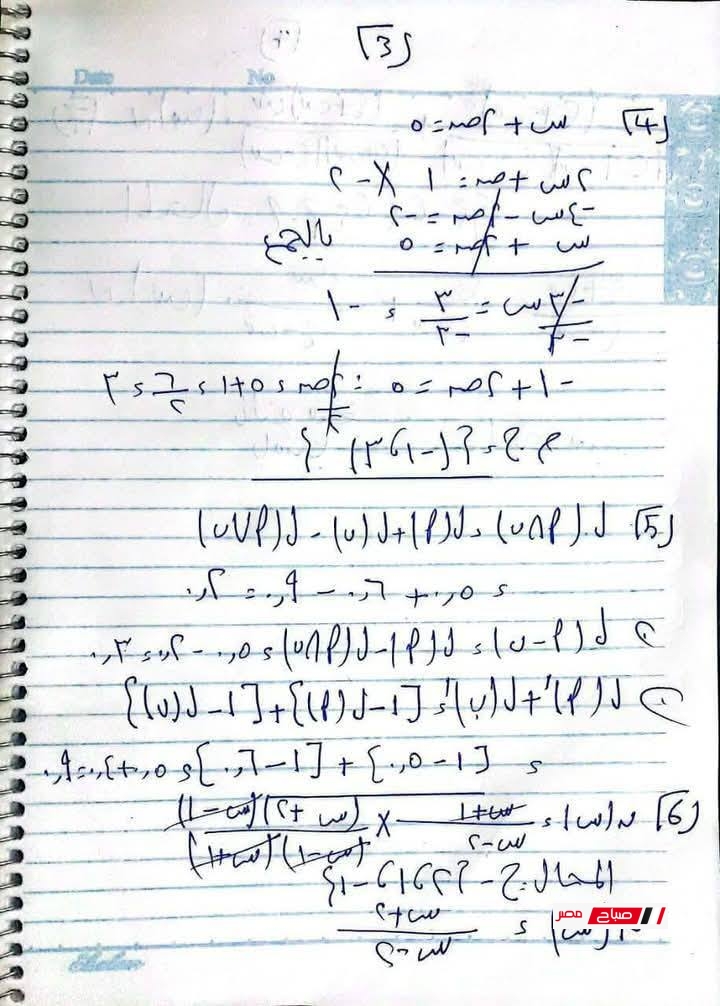 [3]
Date No
[4] س + ٢ص = ٥
٢س + ص = ١ × -٢
-٤س - ٢ص = -٢
س + ٢ص = ٥ بالجمع
-٣س/-٣ = ٣/-٣ = -١
-١ + ٢ص = ٥ ∴ ٢ص/٢ = ٥+١ = ٦/٢ = ٣
م.ح = {(-١، ٣)}
[5] ل(P∩ن) = ل(P) + ل(ن) - ل(P∪ن)
= ٠,٥ + ٠,٦ - ٠,٩ = ٠,٢
ل(P-ن) = ل(P) - ل(P∩ن) = ٠,٥ - ٠,٢ = ٠,٣
ل(P)' + ل(ب)' = [١-ل(P)] + [١-ل(ن)]
= [١-٠,٥] + [١-٠,٦] = ٠,٥ + ٠,٤ = ٠,٩
[6] ن(س) = س+١/س-٢ × (س+٢)(س-١)/(س-١)(س+١)
المجال = ح - {٢، ١، -١}
ن(س) = س+٢/س-٢
صباح مصر